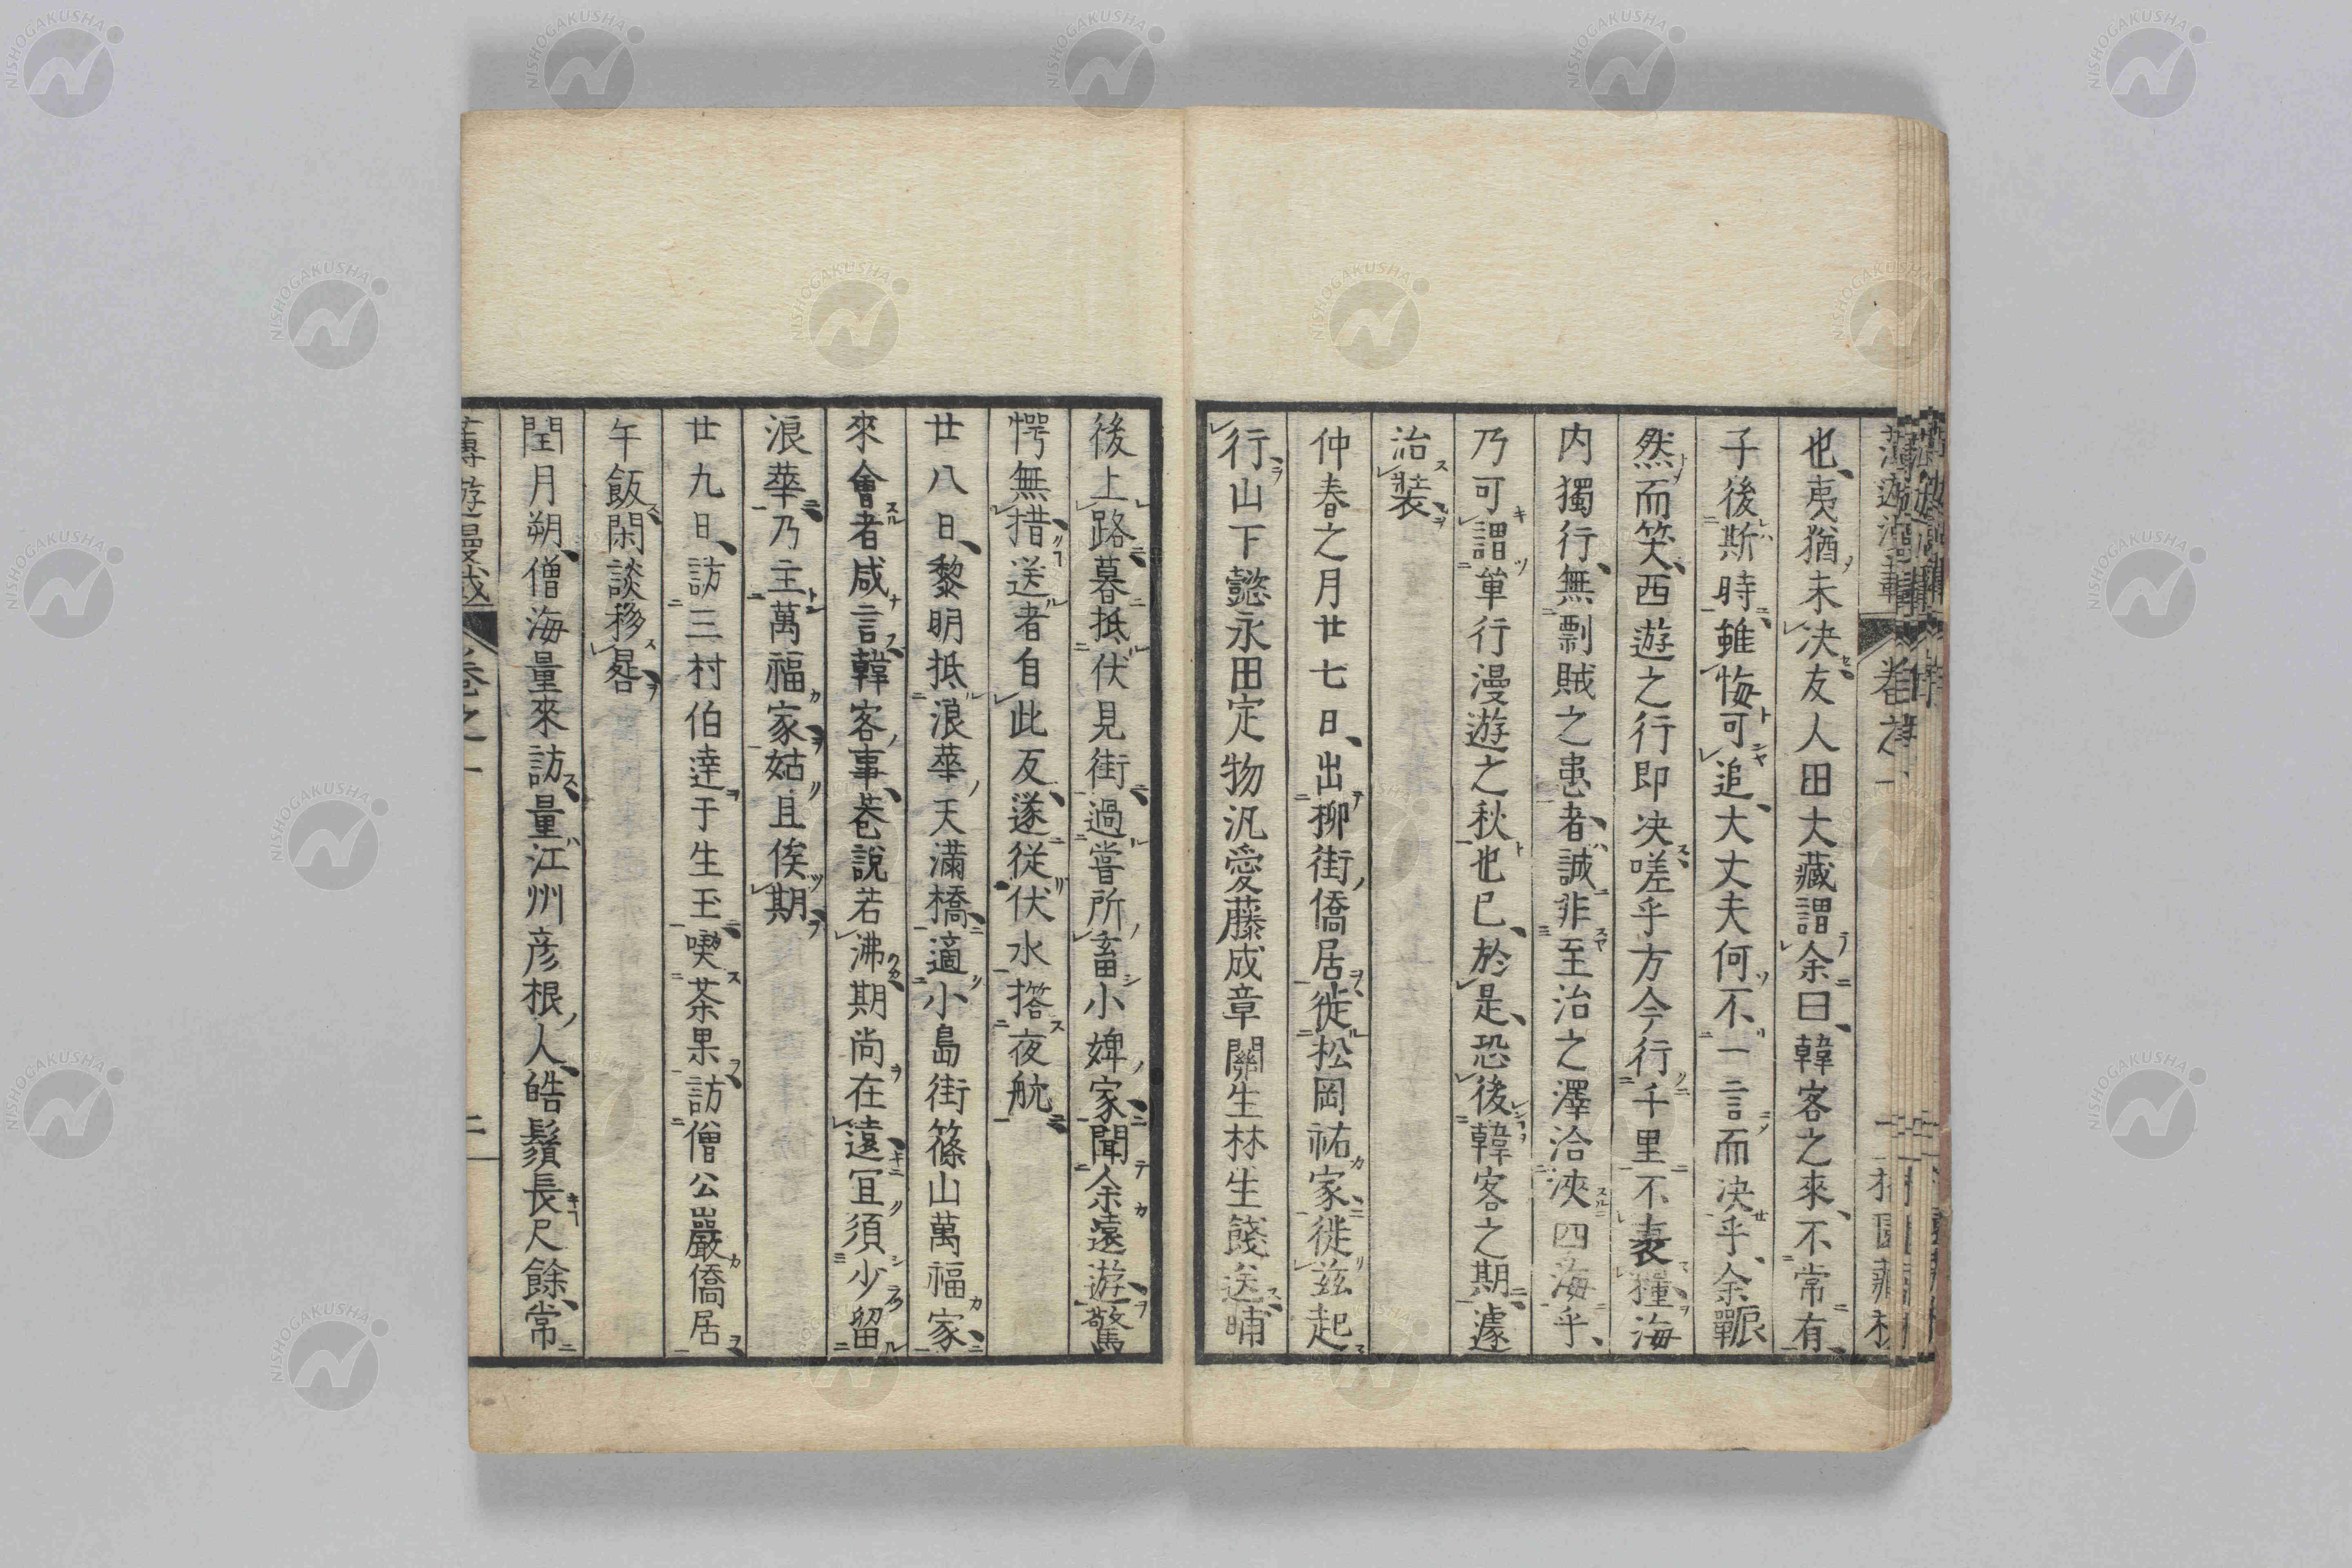 也夷猶未决友人田大藏謂余曰韓客之來不常有
子後斯時雖悔可追大丈夫何不一言而决乎余囅
然而笑西遊之行即决嗟乎方今行千里不裹糧海
内獨行無剽賊之患者誠非至治之澤洽浹四海乎
乃可謂單行漫遊之秋也已於是恐後韓客之期遽
治裝
仲春之月廿七日出柳街僑居徙松岡祐家徙兹起
行山下懿永田定物汎愛藤成章關生林生餞送晡
後上路暮抵伏見街過嘗所畜小婢家聞余遠遊驚
愕無措送者自此反遂從伏水撘夜航
廿八日黎明抵浪華天滿橋適小島街篠山萬福家
來會者咸言韓客事巷說若沸期尚在遠冝須少留
浪華乃主萬福家姑且俟期
廿九日訪三村伯逹于生玉喫茶果訪僧公巖僑居
午飯閑談移晷
閏月朔僧海量來訪量江州彦根人皓鬚長尺餘常
卷之一
二
NISHOGAKUSHA